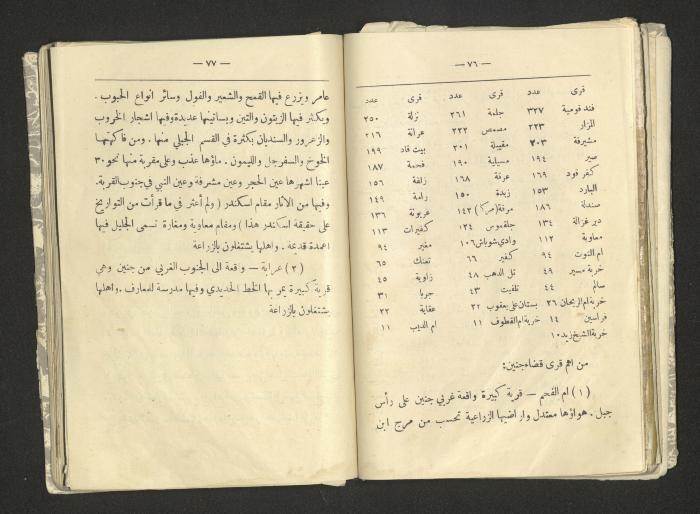 — ٧٦ —
قرى عدد قرى عدد قرى عدد
فندقومية ٣٢٧ جلمة ٢٦١ نزلة ٢٥٠
المزار ٢٢٣ مصمص ٢٢٢ عرانة ٢١٦
مشيرفة ٢٠٣ مقيبلة ٢٠١ بيت قاد ١٩٩
صير ١٩٤ مسيلية ١٩٠ فحمة ١٨٧
كفر قود ١٦٩ عرقة ١٦٨ زلفة ١٥٦
البارد ١٥٣ زبدة ١٥٠ رامة ١٤٩
صندلة ١٨٦ مرقة ١٤٢ عربونة ١٣٦
دير غزالة ١٣٤ جلقموس ١٢٤ كفيرات ١١٣
معاوية ١١٢ وادي شوباش ١٠٦ مغير ٩٤
ام التوت ٩٤ كفير ٦٦ تعنك ٦٥
خربة مسير ٤٩ تل الذهب ٤٨ زاوية ٤٥
سالم ٤٤ تلفيت ٤٣ جربا ٣١
خربة ام الريحان ٢٦ بستان علي يعقوب ٢٢ عقابة ٢٢
فراسين ١٤ خربة ام القطوف ١١ ام الديب ١١
خربة الشيخ زيد ١٠
من اهم قرى قضاء جنين:
(١) ام الفحم — قرية كبيرة واقعة غربي جنين على رأس
جبل . هواؤها معتدل واراضيها الزراعية تحسب من مرج ابن
— ٧٧ —
عامر ويزرع فيها القمح والشعير والفول وسائر انواع الحبوب .
ويكثر فيها الزيتون والتين وبساتينها عديدة وفيها اشجار الخروب
والزعرور والسنديان بكثرة في القسم الجبلي منها . ومن فاكهتها
الخوخ والسفرجل والليمون . ماؤها عذب وعلى مقربة منها نحو ٣٠
عينا اشهرها عين الحجر وعين مشرفة وعين النبي في جنوب القرية.
وفيها من الآثار مقام اسكندر ( ولم أعثر في ما قرأت من التواريخ
على حقيقة اسكندر هذا ) ومقام معاوية ومغارة تسمى الجليل فيها
اعمدة قديمة . واهلها يشتغلون بالزراعة
(٢) عرابة — واقعة الى الجنوب الغربي من جنين وهي
قرية كبيرة يمر بها الخط الحديدي وفيها مدرسة للمعارف . واهلها
يشتغلون بالزراعة